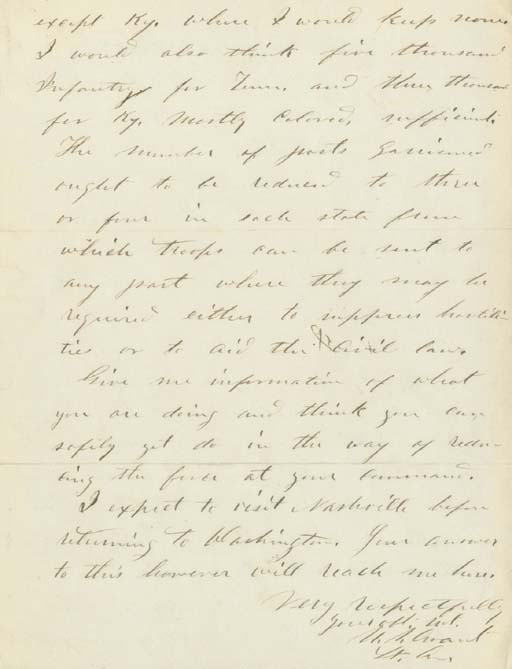 except Ky. where I would keep none.
I would also think five thousand
Infantry for Tenn. and three thousand
for Ky. Mostly Colored, sufficient.
The number of posts garrisoned
ought to be reduced to three
or four in each state from
which troops can be sent to
any part where they may be
required either to suppress hostili-
ties or to aid the Civil law.
Give me information of what
you are doing and think you can
safely yet do in the way of redu-
cing the force at your command.
I expect to visit Nashville before
returning to Washington. Your answer
to this however will reach me here.
Very respectfully
your obt. svt.
U. S. Grant
Lt. Gn.